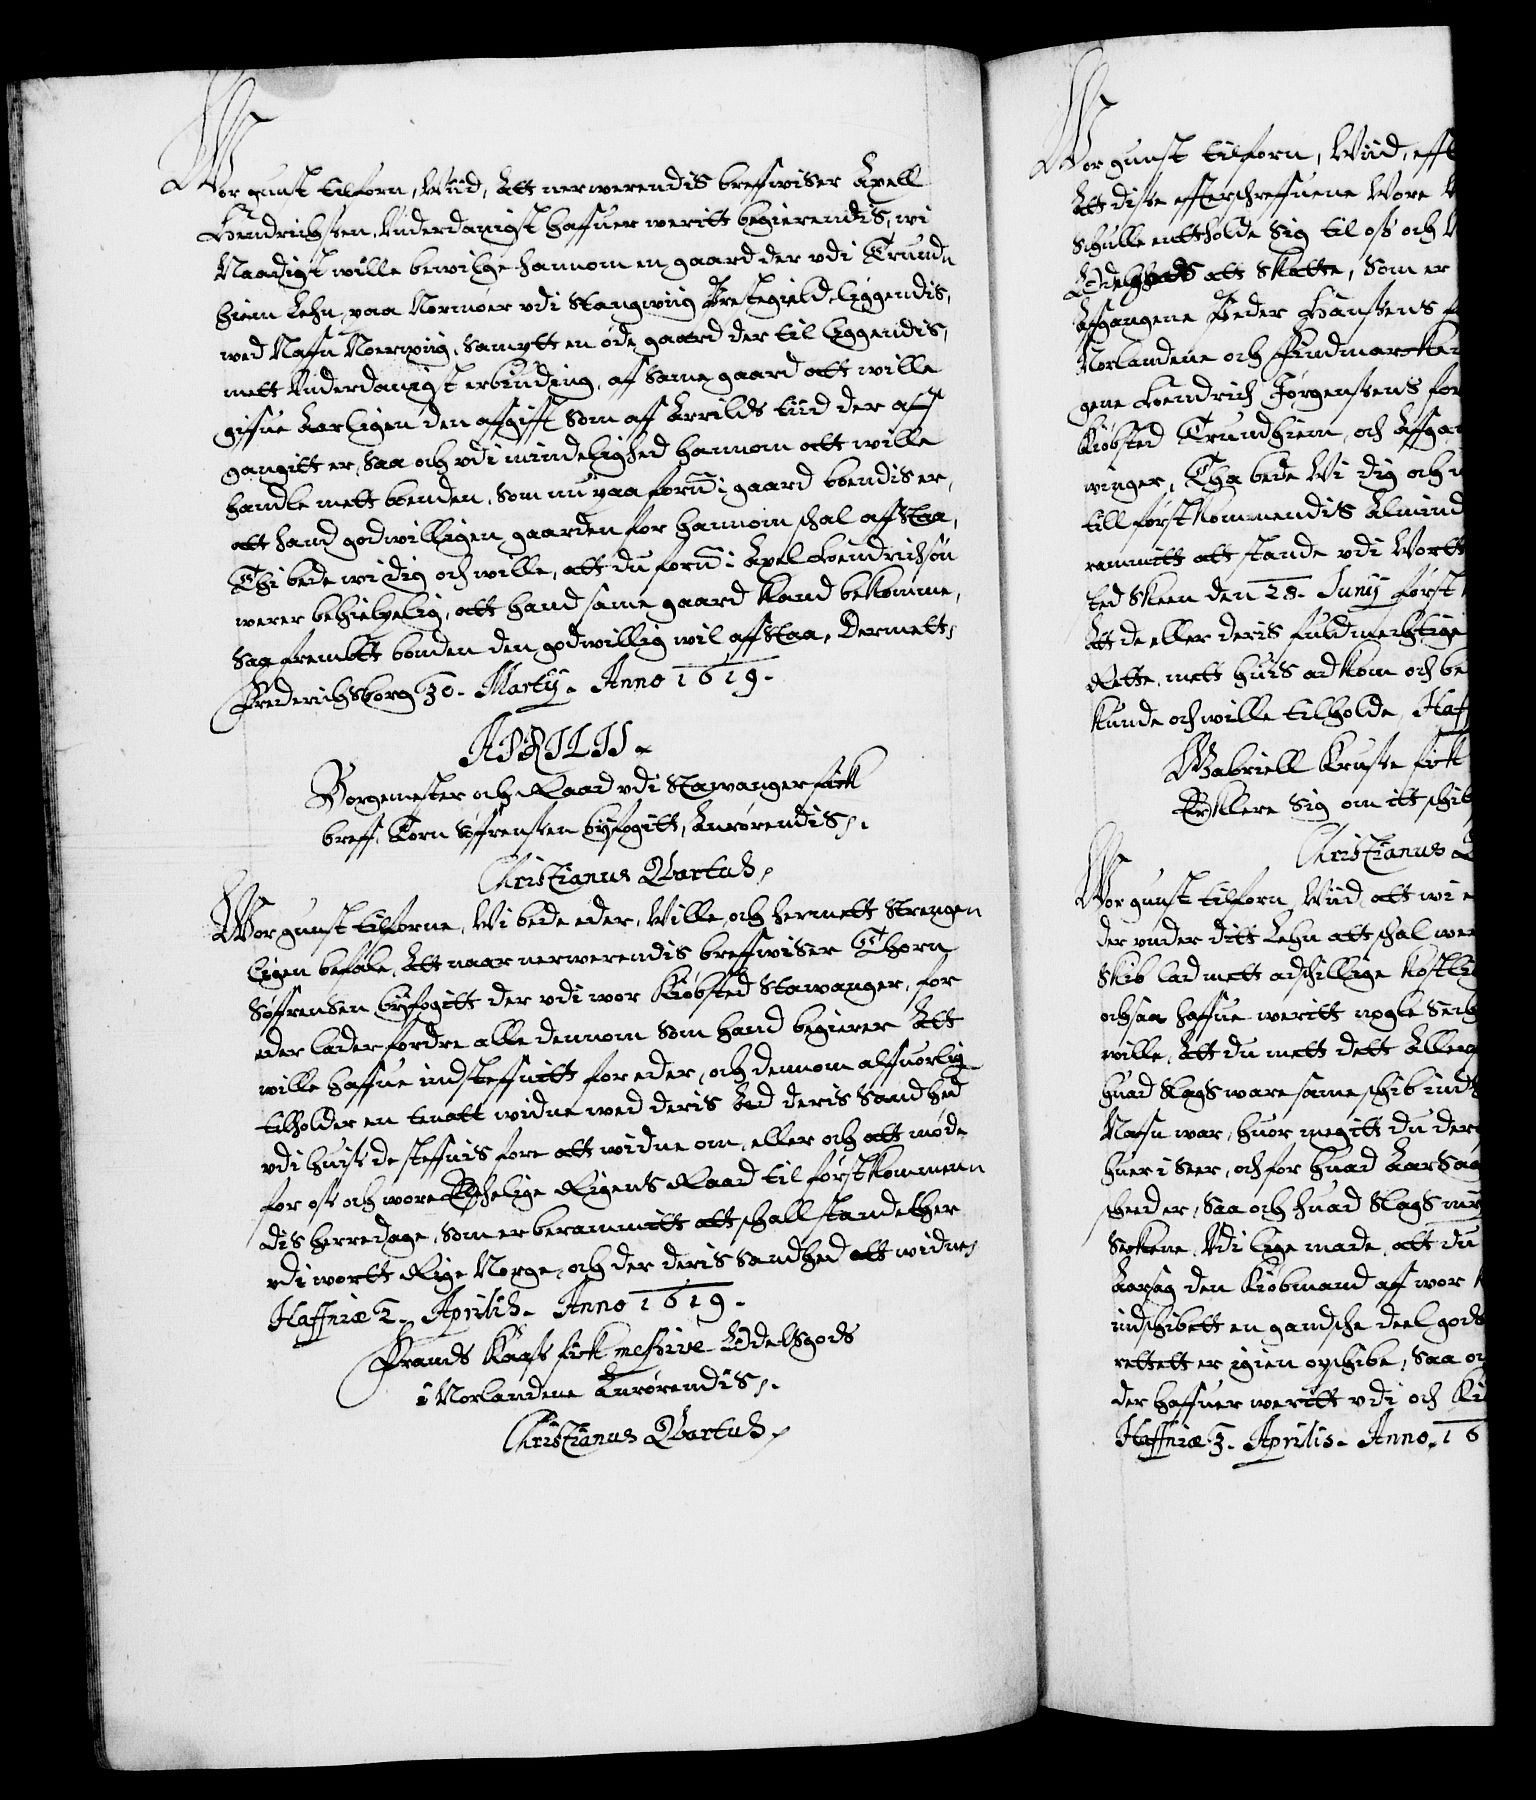 Wor gunst tilforn, Wiid, Att nerwerendis breffwiser Axell
Hendrichssen, Vnderdanigst haffuer weritt begierendis, wi
Naadigst wille bewilge hannom en gaard der vdi Trund-
hiem Lehn, paa Normoer vdi Stangwiig Prestegield liggendis,
wed Nafn Noerwiig, Sampt en øde gaard der til liggendis,
mett Vnderdanigst erbiuding, aff same gaard att wille
giffue Aarligen den affgifft som aff Arrilds tiid der aff
gangitt er, Saa och vdi mindelighed hannom att wille
handle mett bonden, som nu paa fornᵉ gaard boendis er,
att hand godwilligen gaarden for hannom schal affstaa,
Thi bede wi dig och wille, att du fornᵉ Axel Hendrichsøn
werer behielpelig, att hand same gaard kand bekomme,
Saa frembtt bonden den godwillig wil affstaa, Dermett,
Frederichsborg 30. Martij. Anno 1619.
APRILIS.
Borgemester och Raad vdi Stawanger fick
breff, Torn Søffrensen byfogitt, Anrørendis,.
Christianus Qvartus,
Wor gunst tilforne, Wi bede eder, Wille, och hermett Strengen
ligen befale, Att naar nerwerendis breffwiser Thorn
Søffrensen byfogitt der vdi wor Kiøbsted Stawanger, for
eder lader fordre alle dennom som hand begierer Att
wille haffue indsteffnitt for eder, och dennom alfuorlig
tilholder en tenatt widne wed deris Eed deris Sandhed
vdi huis de steffnis fore att widne om, eller och att møde
for oss och wore Elschelige Rigens Raad til førstkommen
dis herredage, som er berammitt att schall stande her
vdi wortt Rige Norge, och der deris sandhed att widne,
Haffniæ 2. Aprilis. Anno 1619.
Frands Kaass fick missive Ødelsgods
i Norlandene Anrørendis,.
Christianus Qvartus,
Wor gunst tilforn, Wiid, eff
Att disse effterschreffuene Wore
Schulle entholde sig til oss och
Ødelgods att skatte, som er
Affgangene Peder Hanssens
Norlandene och Findmarcken
gene Hendrich Jørgenssens for
Kiøbsted Trundhiem, och Affgan
winger, Tha bede Wi dig och
till først kommendis Almind
rammitt att stande vdi Wortt
sted Skeen den 28. Junij først
Att de eller deris fuldmechtige
Rette, mett huis adkom och be
kunde och wille tilholde, Haf
Gabriell Kruse fick
Erklere sig om itt schib
Christianus
Wor gunst tilforn, Wiid att wi
der vnder ditt Lehn att schal wer
skib lad mett adschillige kostlig
ochsaa haffue weritt nogle
wille, Att du mett dett Aller
huad slags ware same schib ind
Nafn war, huor megitt du der
huer i seer, och for huad Aarsag
scheed er, Saa och huad slags
Seckene. Vdi lige made, att du
Aarsag den Kiøbmand aff wor
indschibett en gandsche deel gods
rettett er igien opschibe, Saa
der haffuer weritt vdi och
Haffniæ 3. Aprilis. Anno. 16